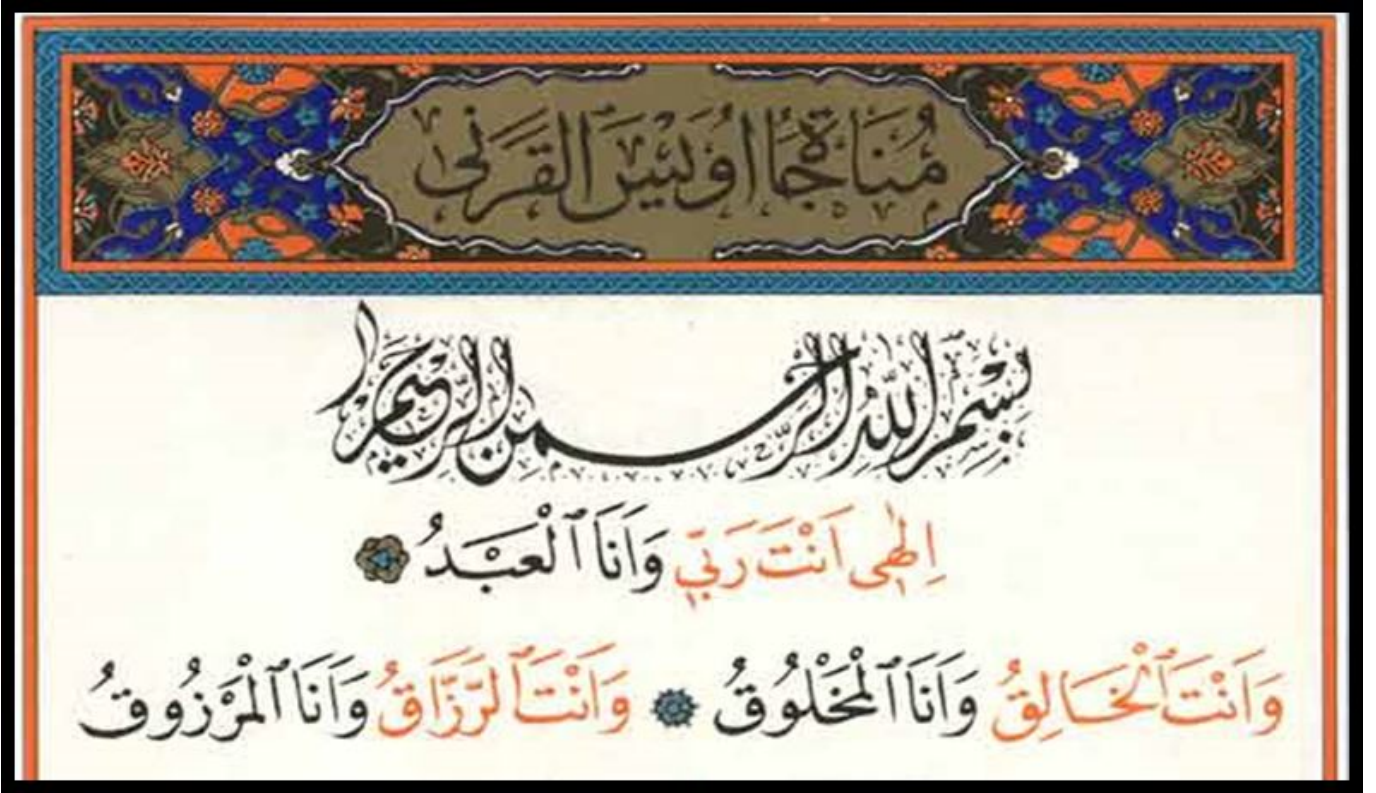 مُنَاجَاةُ اُوَيْسِ الْقَرَنِى
بِسْمِ اللّٰهِ الرَّحْمٰنِ الرَّحِيمِ
اِلٰهِى اَنْتَ رَبِّى وَاَنَا ٱلْعَبْدُ
وَاَنْتَ ٱلْخَالِقُ وَاَنَا ٱلْمَخْلُوقُ وَاَنْتَ ٱلرَّزَّاقُ وَاَنَا ٱلْمَرْزُوقُ